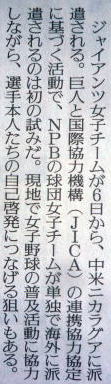 ジャイアンツ女子チームが6日から、中米ニカラグアに派
遣される。巨人と国際協力機構（JICA）の連携協力協定
に基づく活動で、NPBの球団女子チームが単独で海外に派
遣されるのは初の試みだ。現地で女子野球の普及活動に協力
しながら、選手本人たちの自己啓発につなげる狙いもある。